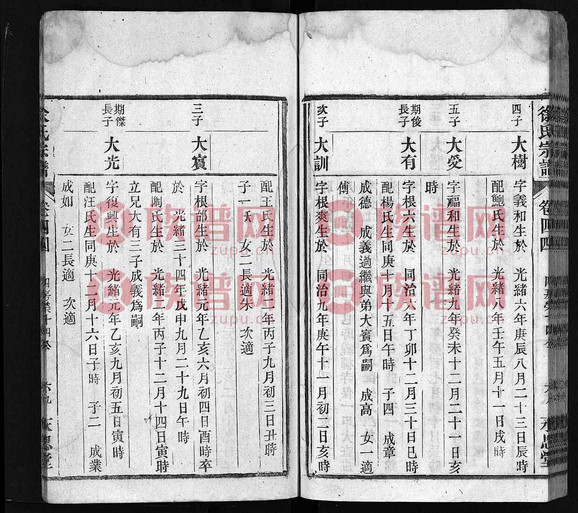 徐氏宗譜 卷四四 永思堂
四子 大樹 字義和生於 光緒六年庚辰八月二十三日辰時
配鮑氏生於 光緒八年壬午五月十一日戌時
五子 大愛 字福和生於 光緒九年癸未十二月二十一日亥
時
期後長子 大有 字根六生於 同治六年丁卯十二月三十日巳時
配楊氏生於 同治 庚十月十五日午時 子四 成章
成德 成義過繼與弟大賓為嗣 成高 女一適
傅
次子 大訓 字根爽生於 同治九年庚午十一月初二日亥時
配王氏生於 光緒二年丙子九月初三日丑時
子一 女二長適朱 次適
三子 大賓 字根部生於 光緒元年乙亥六月初四日酉時卒
於 光緒三十四年戊申九月二十九日午時
配 氏生於 光緒二年丙子十二月十四日寅時
立兄大有三子成義為嗣
期傑長子 大光 字復興生於 光緒元年乙亥九月初五日寅時
配汪氏生於同庚十二月十六日子時 子二 成業
成如 女二長適 次適
氏宗譜 卷四四 永思堂
族谱网 zupu.cn